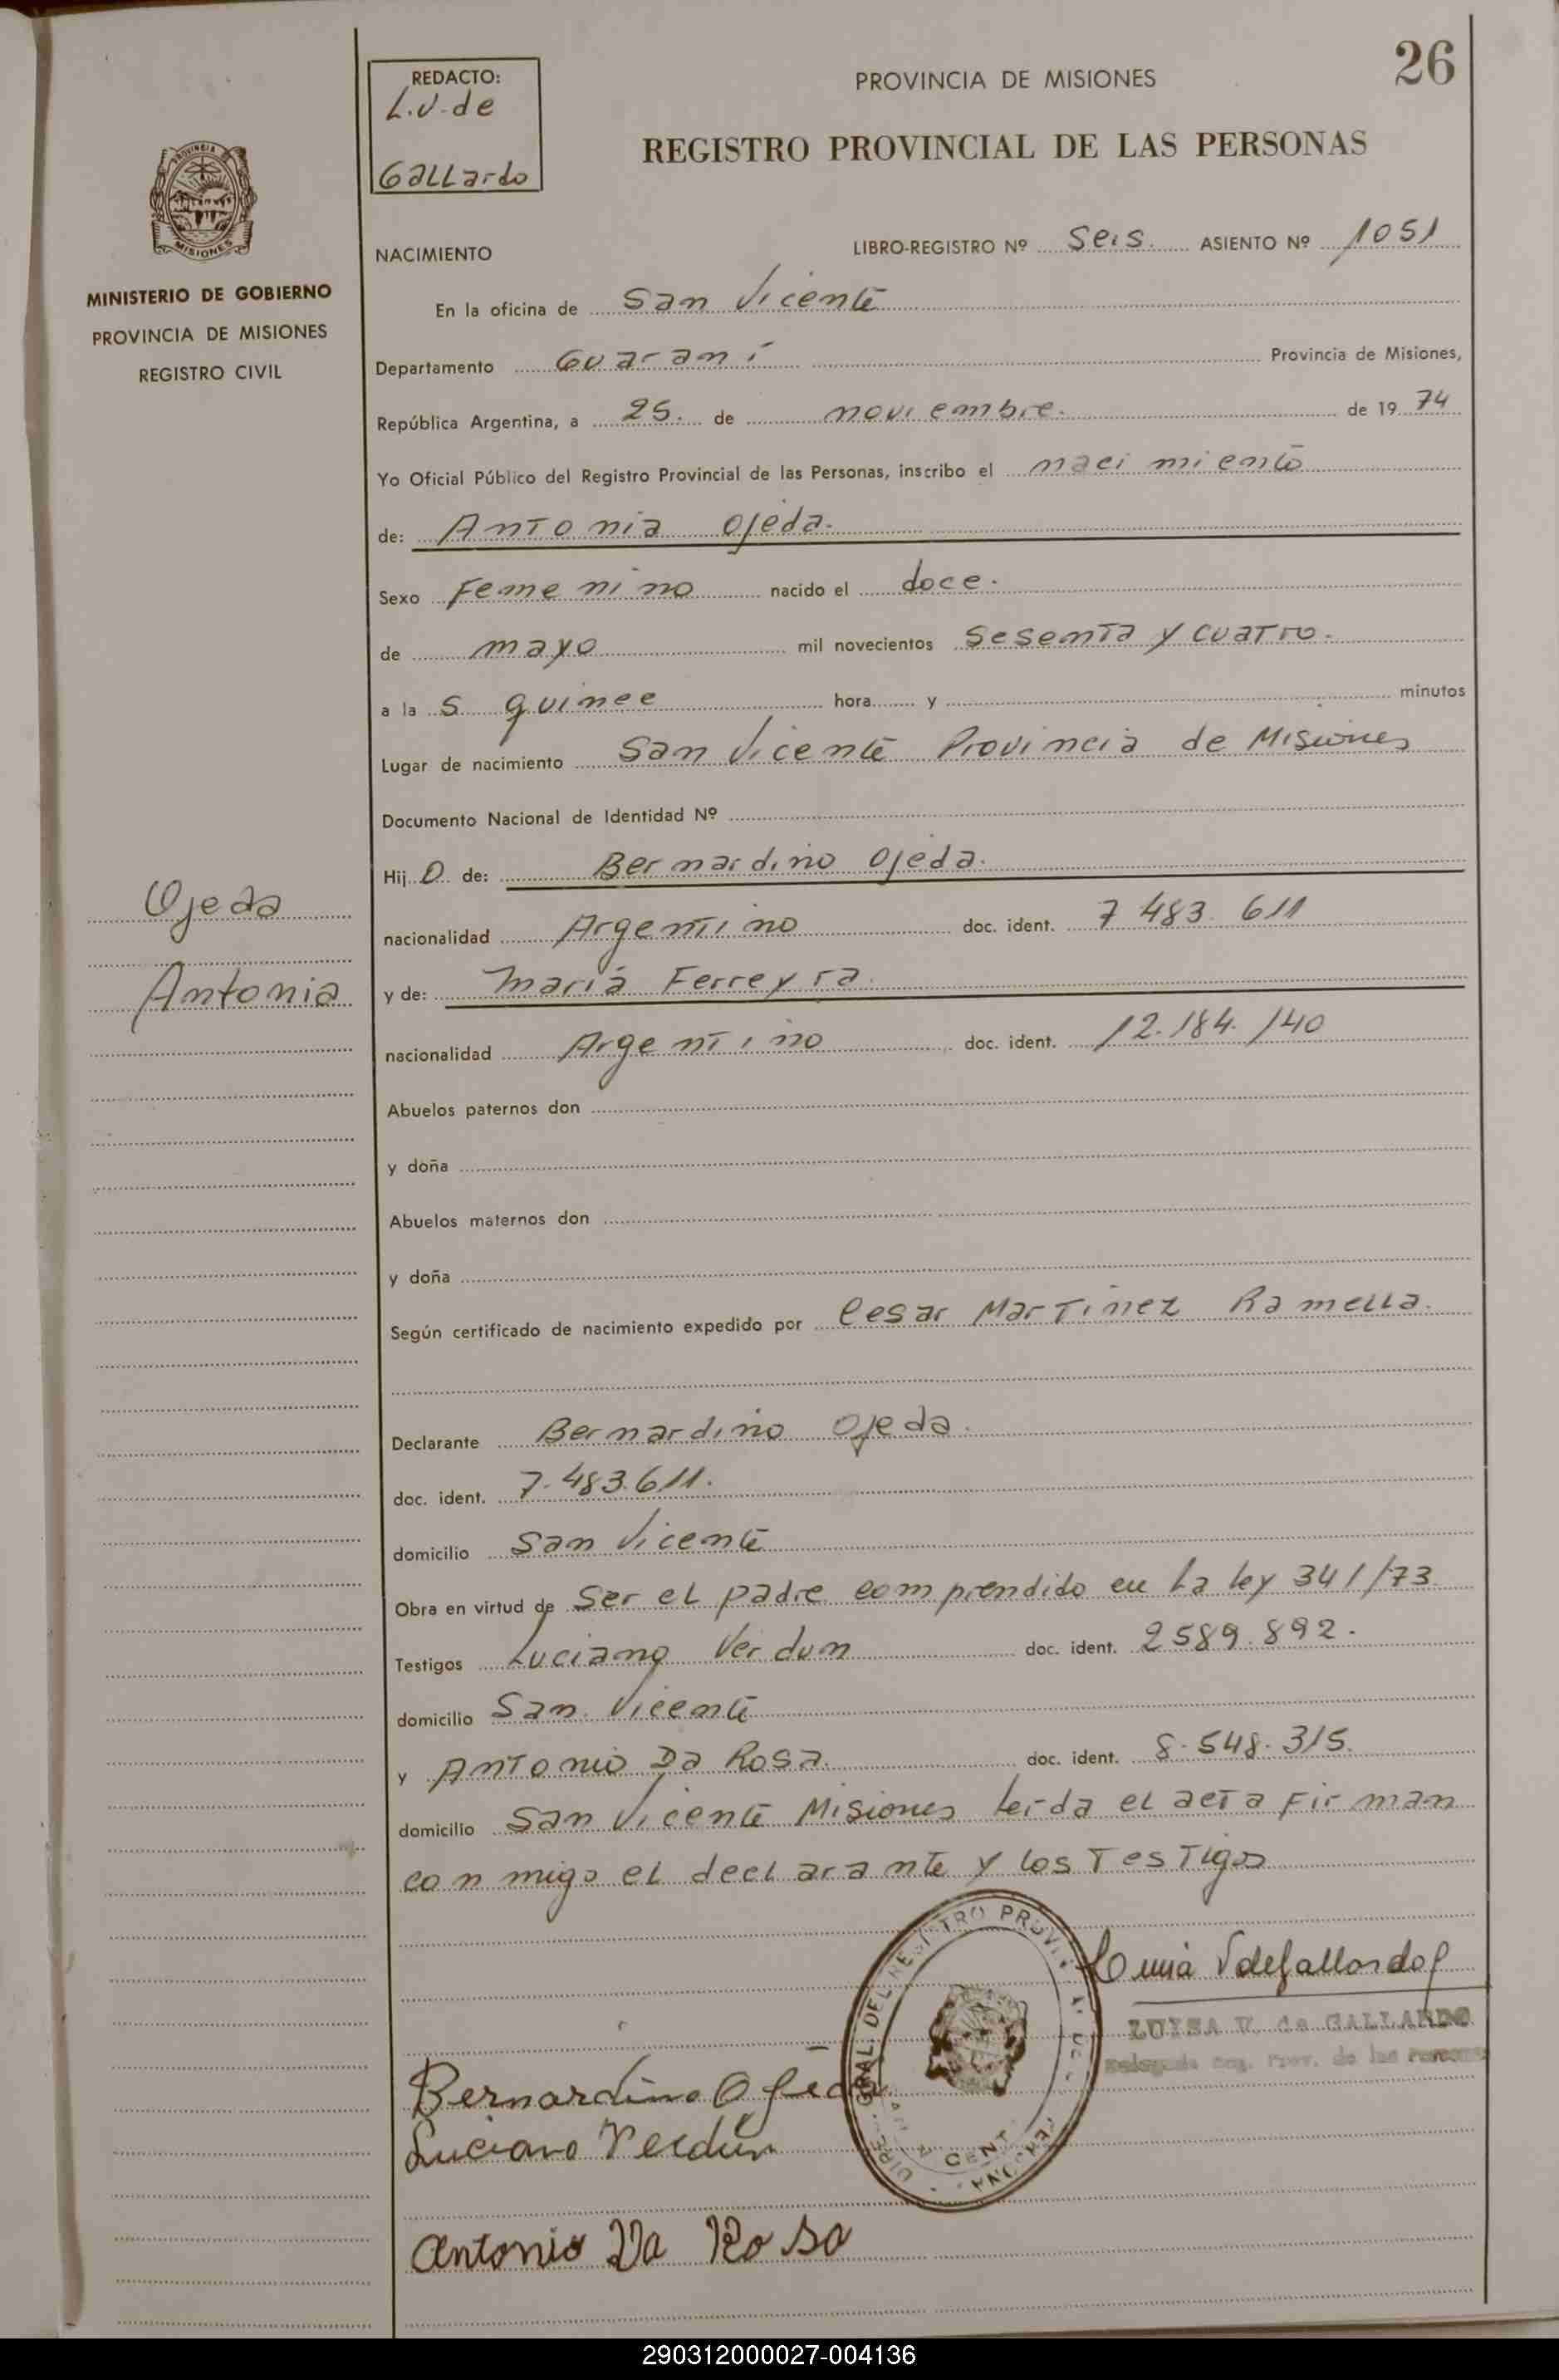 26
REDACTO:
L.V. de
Gallardo
PROVINCIA DE MISIONES
REGISTRO PROVINCIAL DE LAS PERSONAS
MISIONES
MINISTERIO DE GOBIERNO
PROVINCIA DE MISIONES
REGISTRO CIVIL
NACIMIENTO LIBRO-REGISTRO Nº Seis. ASIENTO Nº 1051
En la oficina de San Vicente
Departamento Guaraní Provincia de Misiones,
República Argentina, a 25. de noviembre. de 1974
Yo Oficial Público del Registro Provincial de las Personas, inscribo el nacimiento
de: Antonia Ojeda.
Sexo Femenino nacido el doce.
de mayo mil novecientos sesenta y cuatro.
a la s quince hora y minutos
Lugar de nacimiento San Vicente Provincia de Misiones
Documento Nacional de Identidad Nº
Hij O de: Bernardino Ojeda.
nacionalidad Argentino doc. ident. 7 483. 611
y de: María Ferreyra.
nacionalidad Argentino doc. ident. 12.184.140
Ojeda
Antonia
Abuelos paternos don
y doña
Abuelos maternos don
y doña
Según certificado de nacimiento expedido por Cesar Martinez Ramella.
Declarante Bernardino Ojeda.
doc. ident. 7.483.611.
domicilio San Vicente
Obra en virtud de Ser el padre comprendido en la ley 341/73
Testigos Luciano Verdun doc. ident. 2589.892.
domicilio San Vicente
y Antonio Da Rosa. doc. ident. 8.548.315.
domicilio San Vicente Misiones leída el acta firman
conmigo el declarante y los Testigos
LUISA V. de GALLARDO
Delegada Reg. Prov. de las Personas
Bernardino Ojeda
Luciano Verdún
Antonio Da Rosa
290312000027-004136